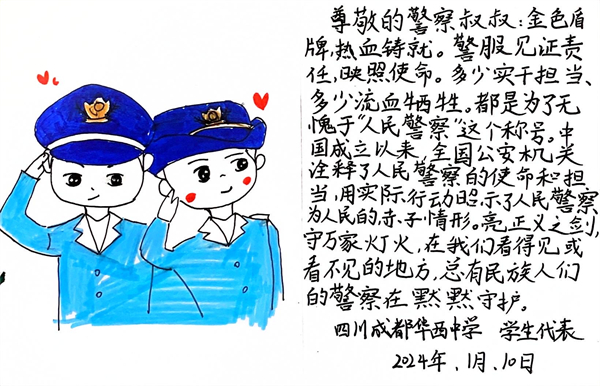 尊敬的警察叔叔:金色盾
牌,热血铸就。警服见证责
任,映照使命。多少实干担当、
多少流血牺牲。都是为了无
愧于“人民警察”这个称号。中
国成立以来,全国公安机关
诠释了人民警察的使命和担
当,用实际行动昭示了人民警察
为人民的赤子情形。亮正义之剑,
守万家灯火,在我们看得见或
看不见的地方,总有民族人们
的警察在默默守护。
四川成都华西中学 学生代表
2024年、1月、10日